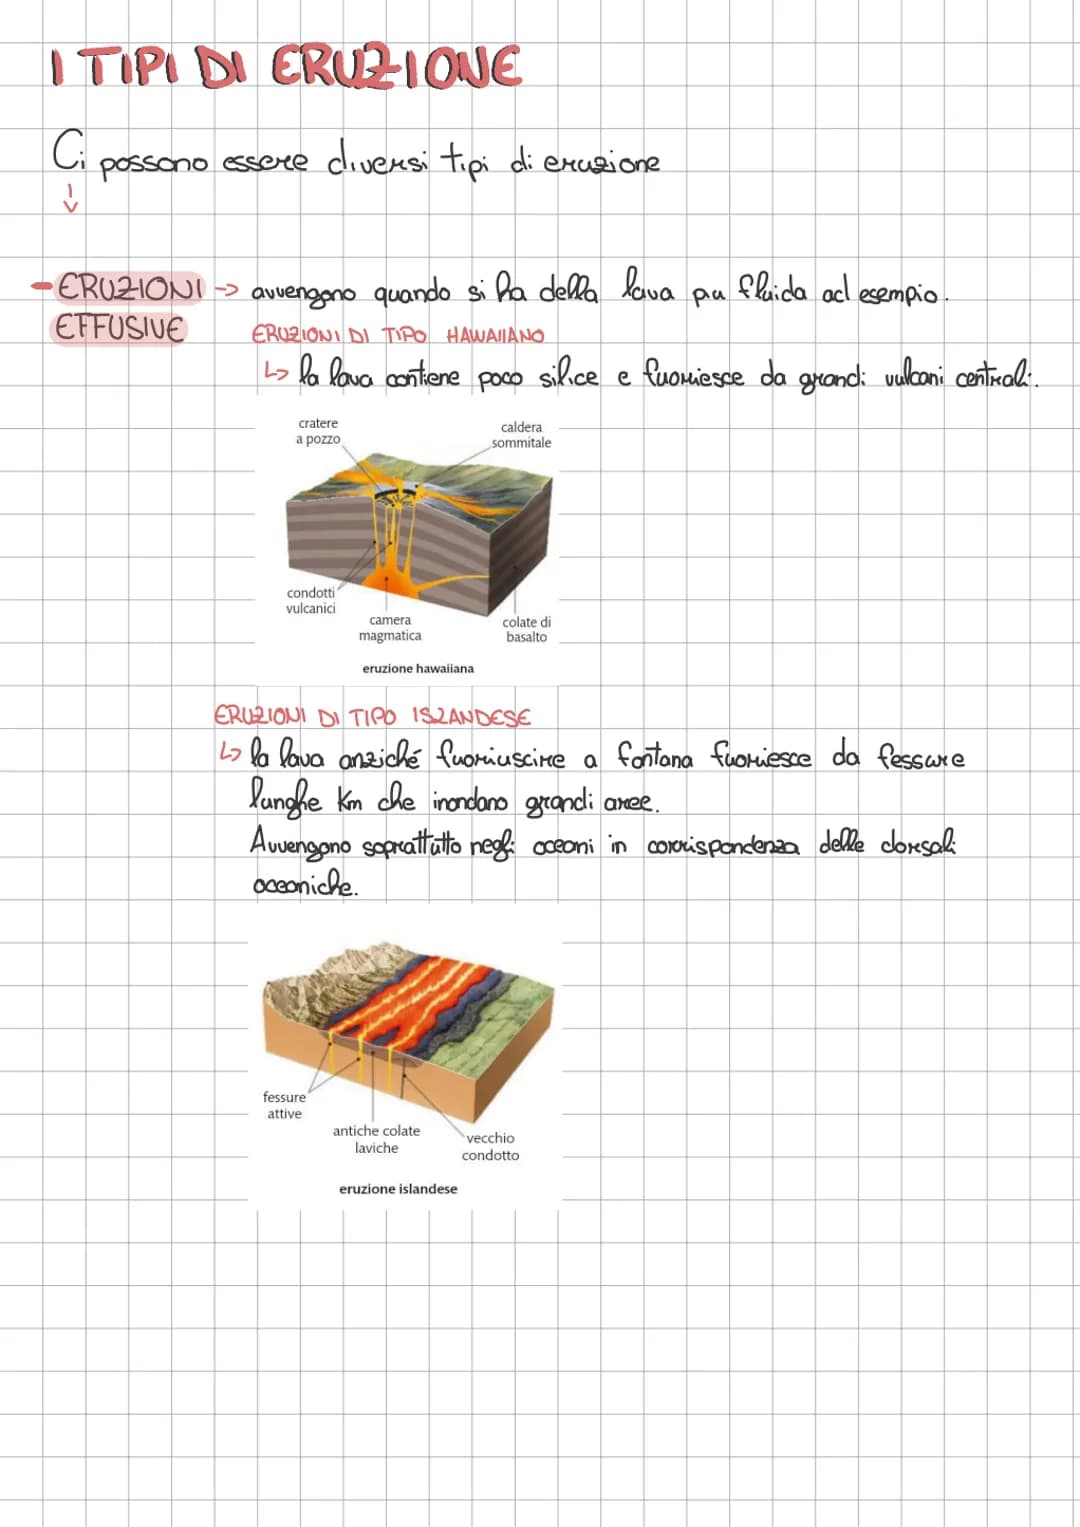 I TIPI DI ERUZIONE
Ci possono essere diversi tipi di eruzione
- ERUZIONI -> avvengono quando si ha della lava più fluida ad esempio.
EFFUSIVE
ERUZIONI DI TIPO HAWAIIANO
↳ la lava contiene poco silice e fuoriesce da grandi vulcani centrali.
cratere
a pozzo
caldera
sommitale
condotti
vulcanici
camera
magmatica
colate di
basalto
eruzione hawaiiana
ERUZIONI DI TIPO ISLANDESE
↳ la lava anziché fuoriuscire a fontana fuoriesce da fessure
lunghe Km che inondano grandi aree.
Avvengono soprattutto negli oceani in corrispondenza delle dorsali
oceaniche.
fessure
attive
antiche colate
laviche
vecchio
condotto
eruzione islandese